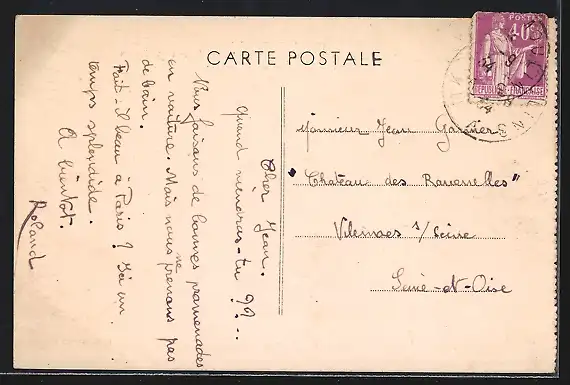 CARTE POSTALE
POSTES
40c
REPUBLIQUE FRANÇAISE
Cher Jean.
Quand viendras-tu ??...
Nous faisons de bonnes promenades
en voiture. Mais nous ne prenons pas
de bain.
Fait-il beau à Paris ? Ici un
temps splendide.
A bientôt.
Roland
Monsieur Jean Garnier
"Chateau des Ravenelles"
Villennes s/Seine
Seine-et-Oise